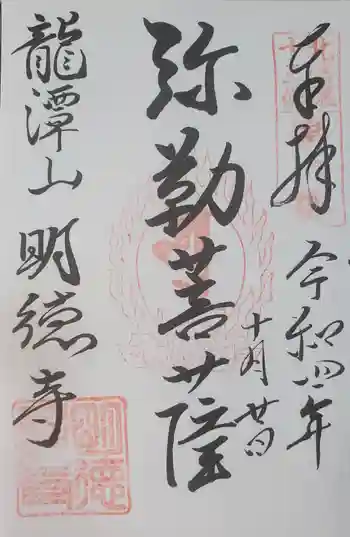 奉拝
令和四年
十月廿日
弥勒菩薩
龍潭山 明徳寺
明徳